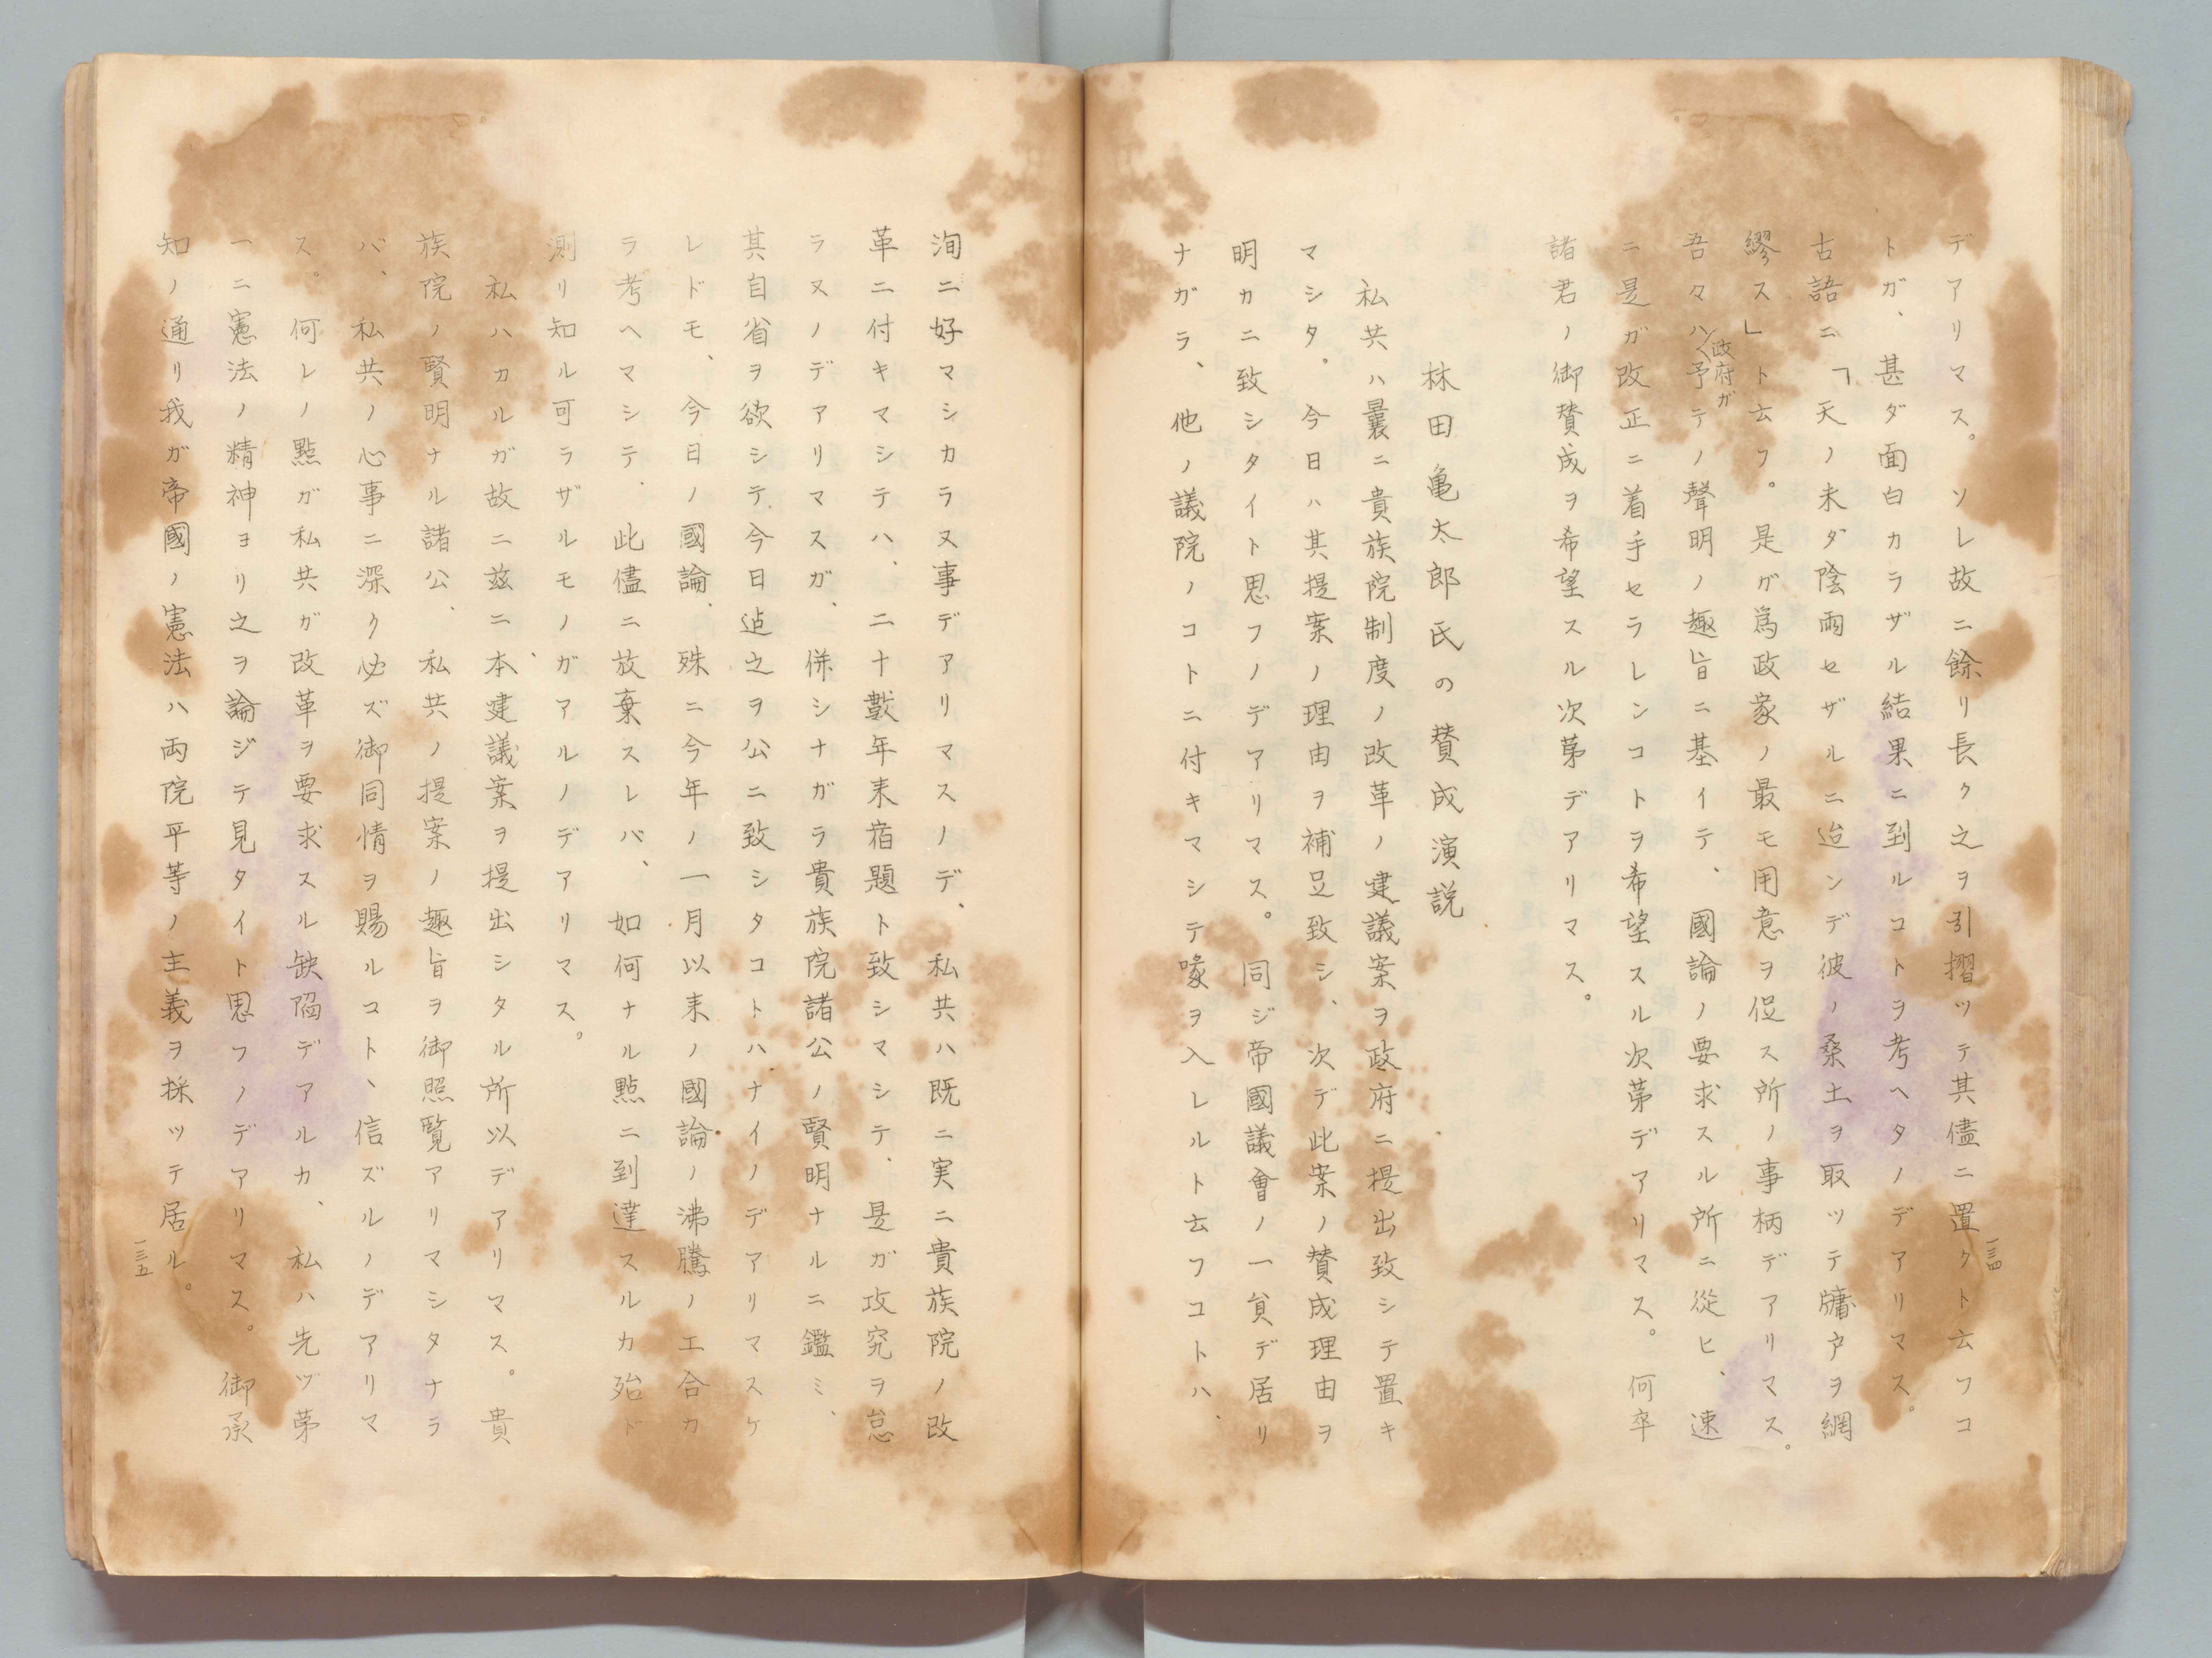 デアリマス。ソレ故ニ餘リ長ク之ヲ引摺ツテ其儘ニ置クト云フコ
トガ、甚ダ面白カラザル結果ニ到ルコトヲ考ヘタノデアリマス。
古語ニ「天ノ未ダ陰雨セザルニ迨ンデ彼ノ桑土ヲ取ツテ牖戸ヲ綢
繆ス」ト云フ。是ガ爲政家ノ最モ用意ヲ促ス所ノ事柄デアリマス。
吾々ハ政府ガ予テノ聲明ノ趣旨ニ基イテ、國論ノ要求スル所ニ從ヒ、速
ニ是ガ改正ニ着手セラレンコトヲ希望スル次第デアリマス。何卒
諸君ノ御賛成ヲ希望スル次第デアリマス。
林田亀太郎氏の賛成演説
私共ハ曩ニ貴族院制度ノ改革ノ建議案ヲ政府ニ提出致シテ置キ
マシタ。今日ハ其提案ノ理由ヲ補足致シ、次デ此案ノ賛成理由ヲ
明カニ致シタイト思フノデアリマス。同ジ帝國議會ノ一員デ居リ
ナガラ、他ノ議院ノコトニ付キマシテ喙ヲ入レルト云フコトハ、
一三四
洵ニ好マシカラヌ事デアリマスノデ、私共ハ既ニ実ニ貴族院ノ改
革ニ付キマシテハ、二十數年来宿題ト致シマシテ、是ガ攻究ヲ怠
ラヌノデアリマスガ、併シナガラ貴族院諸公ノ賢明ナルニ鑑ミ、
其自省ヲ欲シテ今日迠之ヲ公ニ致シタコトハナイノデアリマスケ
レドモ、今日ノ國論、殊ニ今年ノ一月以来ノ國論ノ沸騰ノ工合カ
ラ考ヘマシテ、此儘ニ放棄スレバ、如何ナル點ニ到達スルカ殆ド
測リ知ル可ラザルモノガアルノデアリマス。
私ハカルガ故ニ茲ニ本建議案ヲ提出シタル所以デアリマス。貴
族院ノ賢明ナル諸公、私共ノ提案ノ趣旨ヲ御照覧アリマシタナラ
バ、私共ノ心事ニ深ク必ズ御同情ヲ賜ルコト、信ズルノデアリマ
ス。何レノ點ガ私共ガ改革ヲ要求スル缺陷デアルカ、私ハ先ヅ第
一ニ憲法ノ精神ヨリ之ヲ論ジテ見タイト思フノデアリマス。御承
知ノ通リ我ガ帝國ノ憲法ハ両院平等ノ主義ヲ採ツテ居ル。
一三五